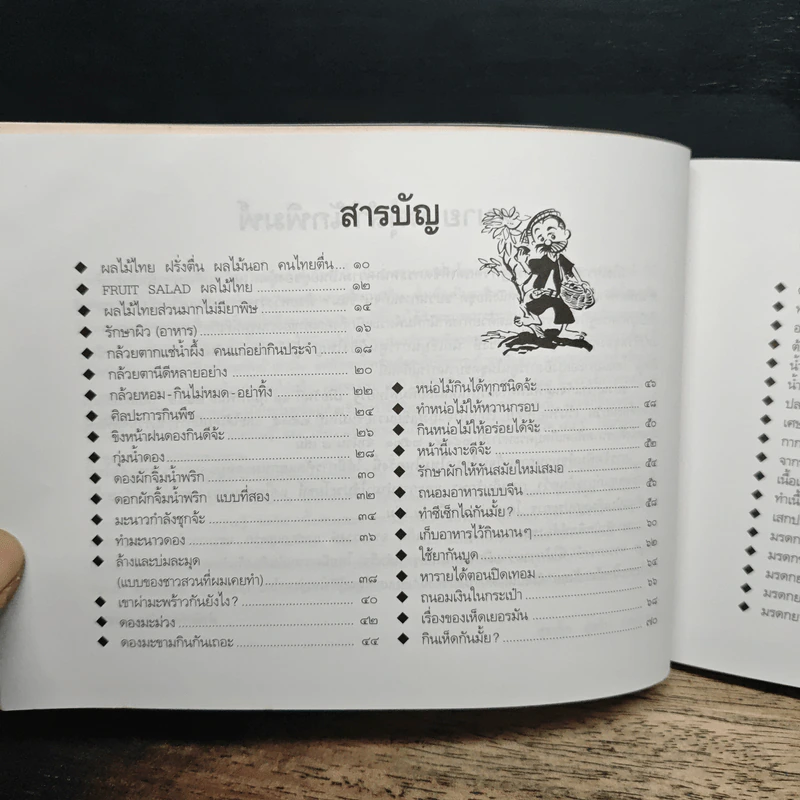 สารบัญ
◆ ผลไม้ไทย ฝรั่งตื่น ผลไม้นอก คนไทยตื่น... ๑๐
◆ FRUIT SALAD ผลไม้ไทย ๑๒
◆ ผลไม้ไทยส่วนมากไม่มียาพิษ ๑๔
◆ รักษาผิว (อาหาร) ๑๖
◆ กล้วยตากแช่น้ำผึ้ง คนแก่อย่ากินประจำ ๑๘
◆ กล้วยตานีดีหลายอย่าง ๒๐
◆ กล้วยหอม-กินไม่หมด-อย่าทิ้ง ๒๒
◆ ศิลปะการกินพืช ๒๔
◆ ขิงหน้าฝนดองกินดีจ้ะ ๒๖
◆ กุ่มน้ำดอง ๒๘
◆ ดองผักจิ้มน้ำพริก ๓๐
◆ ดอกผักจิ้มน้ำพริก แบบที่สอง ๓๒
◆ มะนาวกำลังชุกจ้ะ ๓๔
◆ ทำมะนาวดอง ๓๖
◆ ล้างและบ่มละมุด
(แบบของชาวสวนที่ผมเคยทำ) ๓๘
◆ เขาผ่ามะพร้าวกันยังไง? ๔๐
◆ ดองมะม่วง ๔๒
◆ ดองมะขามกินกันเถอะ ๔๔
◆ หน่อไม้กินได้ทุกชนิดจ้ะ ๔๖
◆ ทำหน่อไม้ให้หวานกรอบ ๔๘
◆ กินหน่อไม้ให้อร่อยได้จ้ะ ๕๐
◆ หน้านี้เงาะดีจ้ะ ๕๒
◆ รักษาผักให้ทันสมัยใหม่เสมอ ๕๔
◆ ถนอมอาหารแบบจีน ๕๖
◆ ทำซีเซ็กไฉ่กันมั้ย? ๕๘
◆ เก็บอาหารไว้กินนานๆ ๖๐
◆ ใช้ยากันบูด ๖๒
◆ หารายได้ตอนปิดเทอม ๖๔
◆ ถนอมเงินในกระเป๋า ๖๖
◆ เรื่องของเห็ดเยอรมัน ๖๘
◆ กินเห็ดกันมั้ย? ๗๐